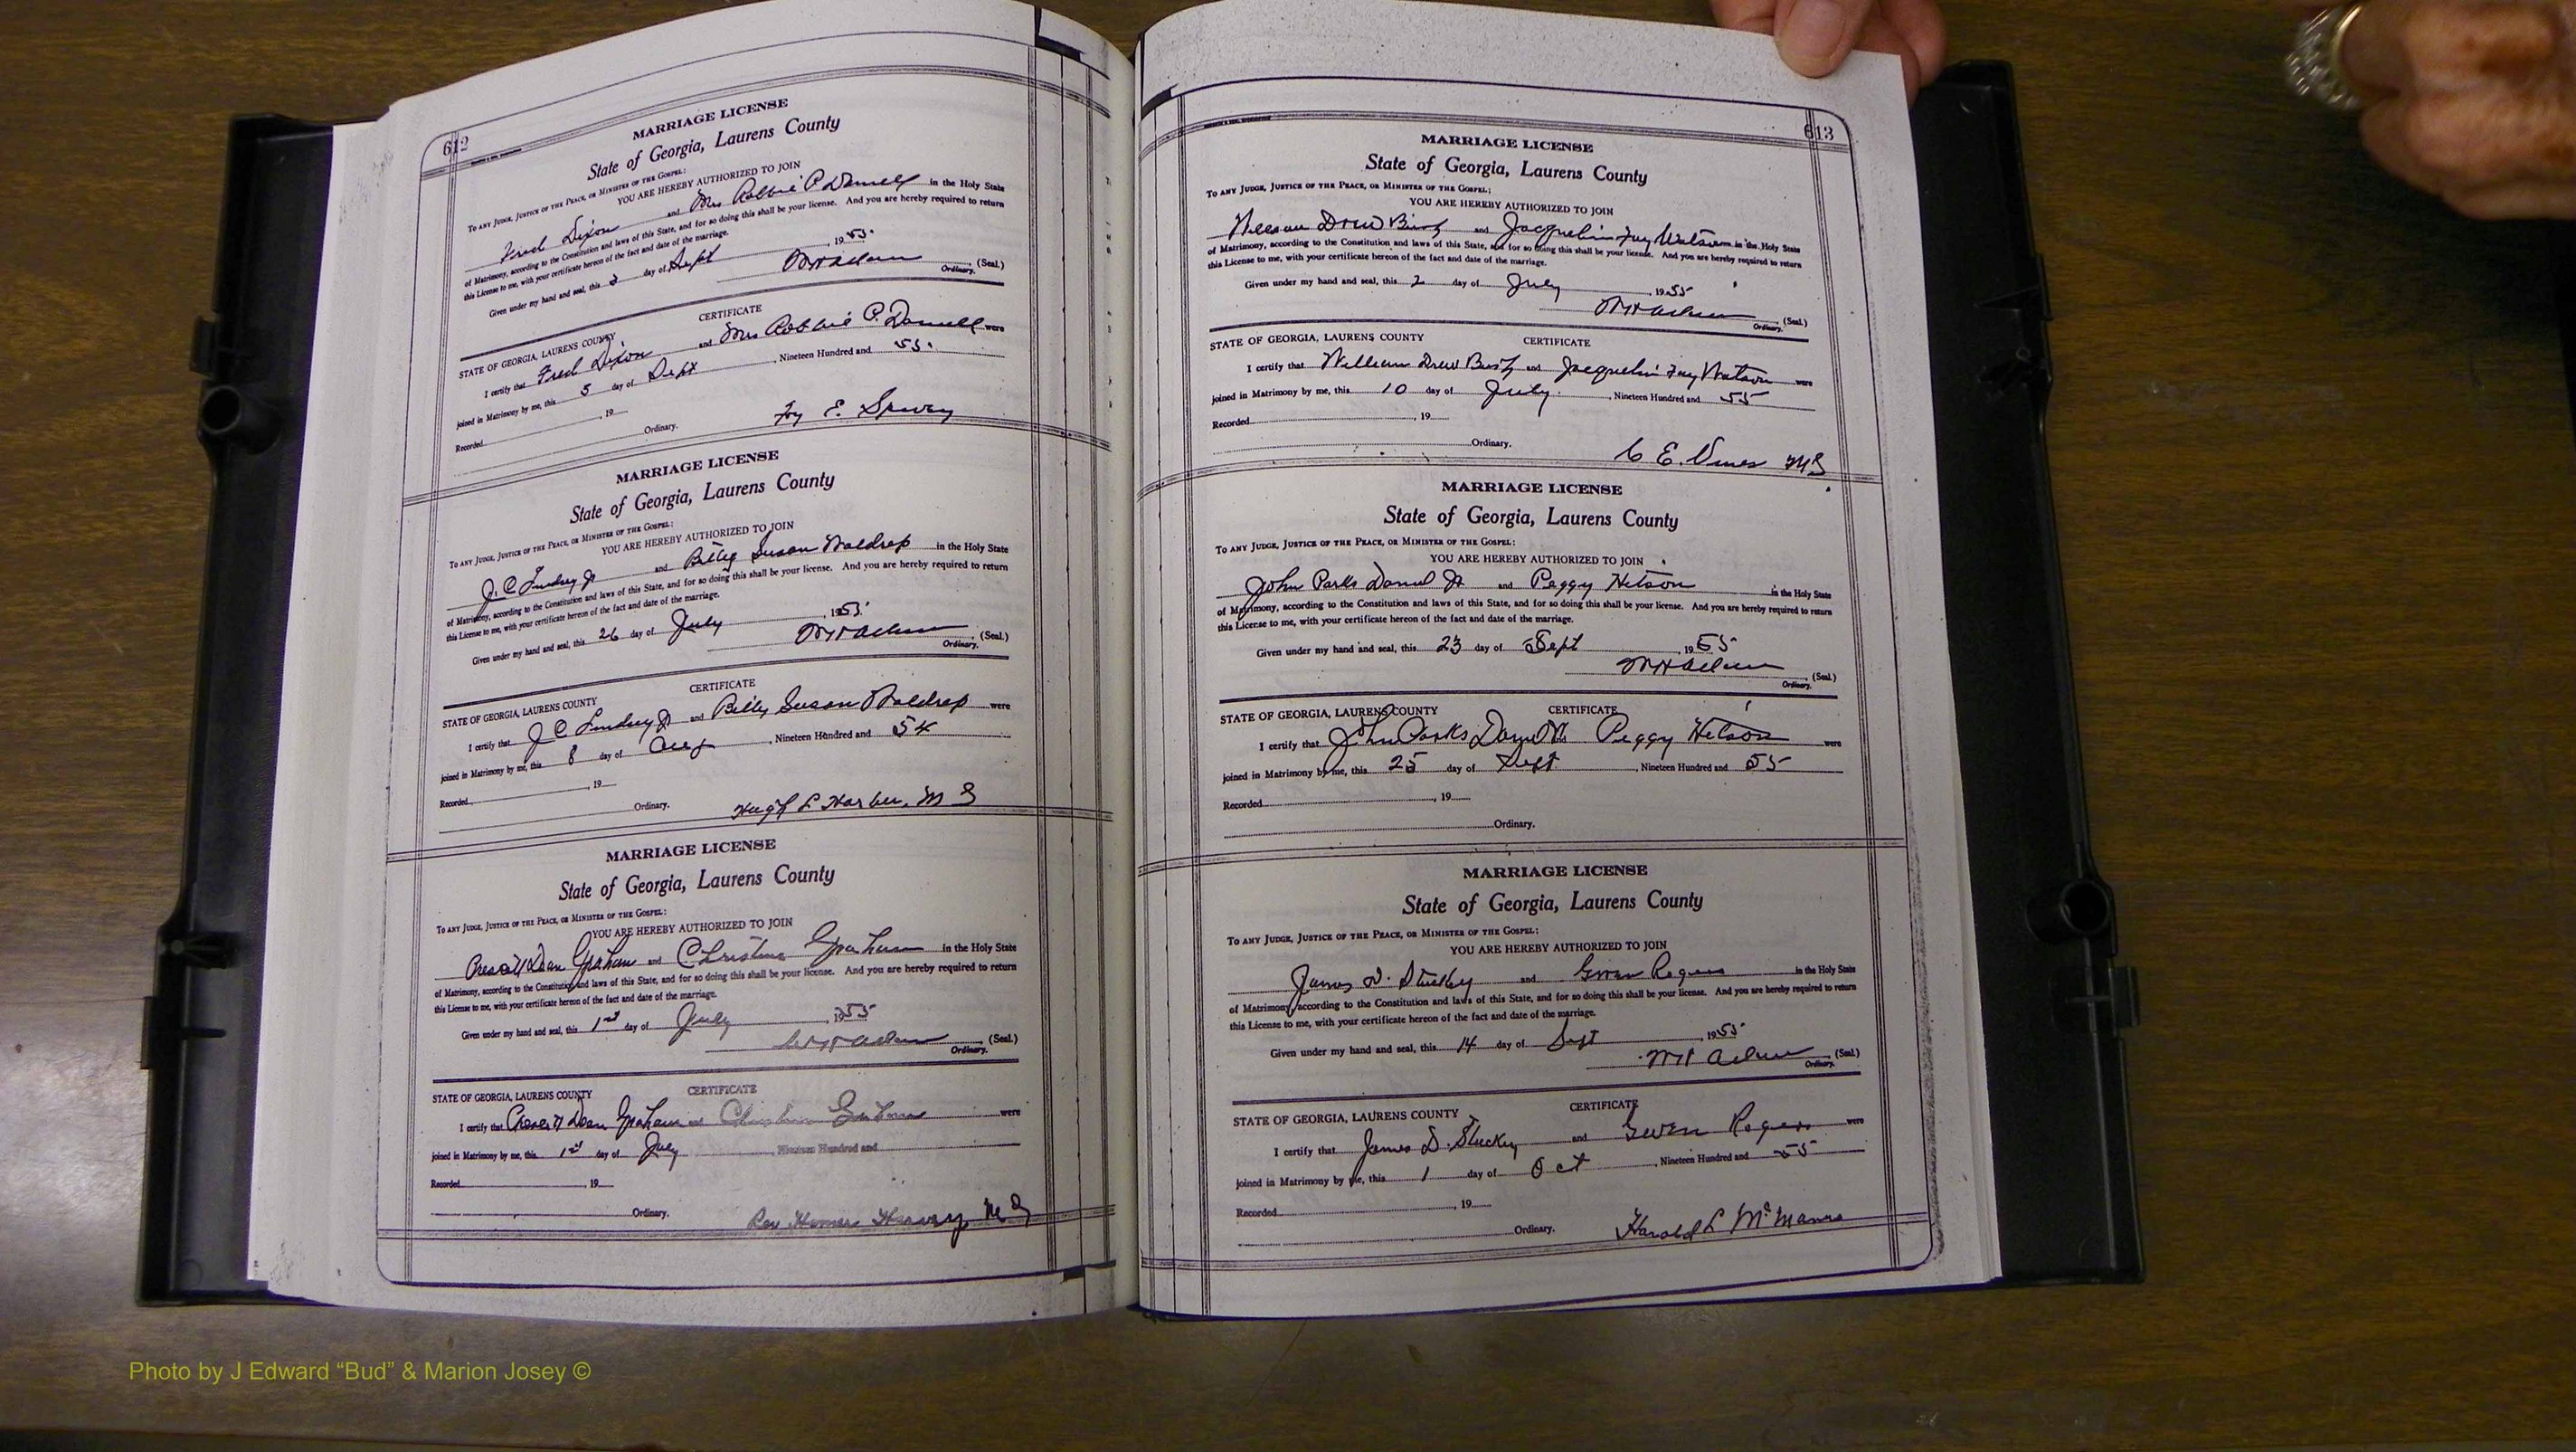 612
MARRIAGE LICENSE
State of Georgia, Laurens County
To ANY JUDGE, JUSTICE OF THE PEACE, OR MINISTER OF THE GOSPEL:
YOU ARE HEREBY AUTHORIZED TO JOIN
Fred Dixon and Mrs Robbie P. in the Holy State
of Matrimony, according to the Constitution and laws of this State, and for so doing this shall be your license. And you are hereby required to return
this License to me, with your certificate hereof of the fact and date of the marriage.
Given under my hand and seal, this 3 day of Sept, 1955.
(Seal.)
Ordinary.
CERTIFICATE
STATE OF GEORGIA, LAURENS COUNTY
I certify that Fred Dixon and Mrs Robbie P. were
joined in Matrimony by me, this day of Sept, Nineteen Hundred and 55.
Recorded, 19
Ordinary.
E. Spivey
MARRIAGE LICENSE
State of Georgia, Laurens County
To ANY JUDGE, JUSTICE OF THE PEACE, OR MINISTER OF THE GOSPEL:
YOU ARE HEREBY AUTHORIZED TO JOIN
J. C. Lindsey Jr and Billy Susan Waldrep in the Holy State
of Matrimony, according to the Constitution and laws of this State, and for so doing this shall be your license. And you are hereby required to return
this License to me, with your certificate hereof of the fact and date of the marriage.
Given under my hand and seal, this 26 day of July
(Seal.)
Ordinary.
CERTIFICATE
STATE OF GEORGIA, LAURENS COUNTY
I certify that J C Lindsey Jr and Billy Susan Waldrep were
joined in Matrimony by me, this 8 day of Aug, Nineteen Hundred and 54
Recorded, 19
Ordinary.
Hugh L M G
MARRIAGE LICENSE
State of Georgia, Laurens County
To ANY JUDGE, JUSTICE OF THE PEACE, OR MINISTER OF THE GOSPEL:
YOU ARE HEREBY AUTHORIZED TO JOIN
Dean Graham and Christine Graham in the Holy State
of Matrimony, according to the Constitution and laws of this State, and for so doing this shall be your license. And you are hereby required to return
this License to me, with your certificate hereof of the fact and date of the marriage.
Given under my hand and seal, this day of July, 1955
(Seal.)
Ordinary.
CERTIFICATE
STATE OF GEORGIA, LAURENS COUNTY
I certify that Dean Graham and Christine Graham were
joined in Matrimony by me, this day of July, Nineteen Hundred and
Recorded, 19
Ordinary.
Rev Homer Harvey M G
613
MARRIAGE LICENSE
State of Georgia, Laurens County
To ANY JUDGE, JUSTICE OF THE PEACE, OR MINISTER OF THE GOSPEL:
YOU ARE HEREBY AUTHORIZED TO JOIN
William Drew Bush and Jacquelin Fay Watson in the Holy State
of Matrimony, according to the Constitution and laws of this State, and for so doing this shall be your license. And you are hereby required to return
this License to me, with your certificate hereof of the fact and date of the marriage.
Given under my hand and seal, this 2 day of July, 1955
(Seal.)
Ordinary.
STATE OF GEORGIA, LAURENS COUNTY CERTIFICATE
I certify that William Drew Bush and Jacquelin Fay Watson were
joined in Matrimony by me, this 10 day of July, Nineteen Hundred and 55
Recorded, 19
Ordinary.
C E. Vines MG
MARRIAGE LICENSE
State of Georgia, Laurens County
To ANY JUDGE, JUSTICE OF THE PEACE, OR MINISTER OF THE GOSPEL:
YOU ARE HEREBY AUTHORIZED TO JOIN
John Parks Daniel Jr and Peggy in the Holy State
of Matrimony, according to the Constitution and laws of this State, and for so doing this shall be your license. And you are hereby required to return
this License to me, with your certificate hereof of the fact and date of the marriage.
Given under my hand and seal, this 23 day of Sept, 1955
(Seal.)
Ordinary.
STATE OF GEORGIA, LAURENS COUNTY CERTIFICATE
I certify that John Parks Daniel Jr Peggy were
joined in Matrimony by me, this 25 day of Sept, Nineteen Hundred and 55
Recorded, 19
Ordinary.
MARRIAGE LICENSE
State of Georgia, Laurens County
To ANY JUDGE, JUSTICE OF THE PEACE, OR MINISTER OF THE GOSPEL:
YOU ARE HEREBY AUTHORIZED TO JOIN
James D. Stuckey and Gwen Rogers in the Holy State
of Matrimony, according to the Constitution and laws of this State, and for so doing this shall be your license. And you are hereby required to return
this License to me, with your certificate hereof of the fact and date of the marriage.
Given under my hand and seal, this 14 day of Sept, 1955
(Seal.)
Ordinary.
STATE OF GEORGIA, LAURENS COUNTY CERTIFICATE
I certify that James D. Stuckey and Gwen Rogers were
joined in Matrimony by me, this 1 day of Oct, Nineteen Hundred and 55
Recorded, 19
Ordinary.
Harold L McManus
Photo by J Edward “Bud” & Marion Josey ©